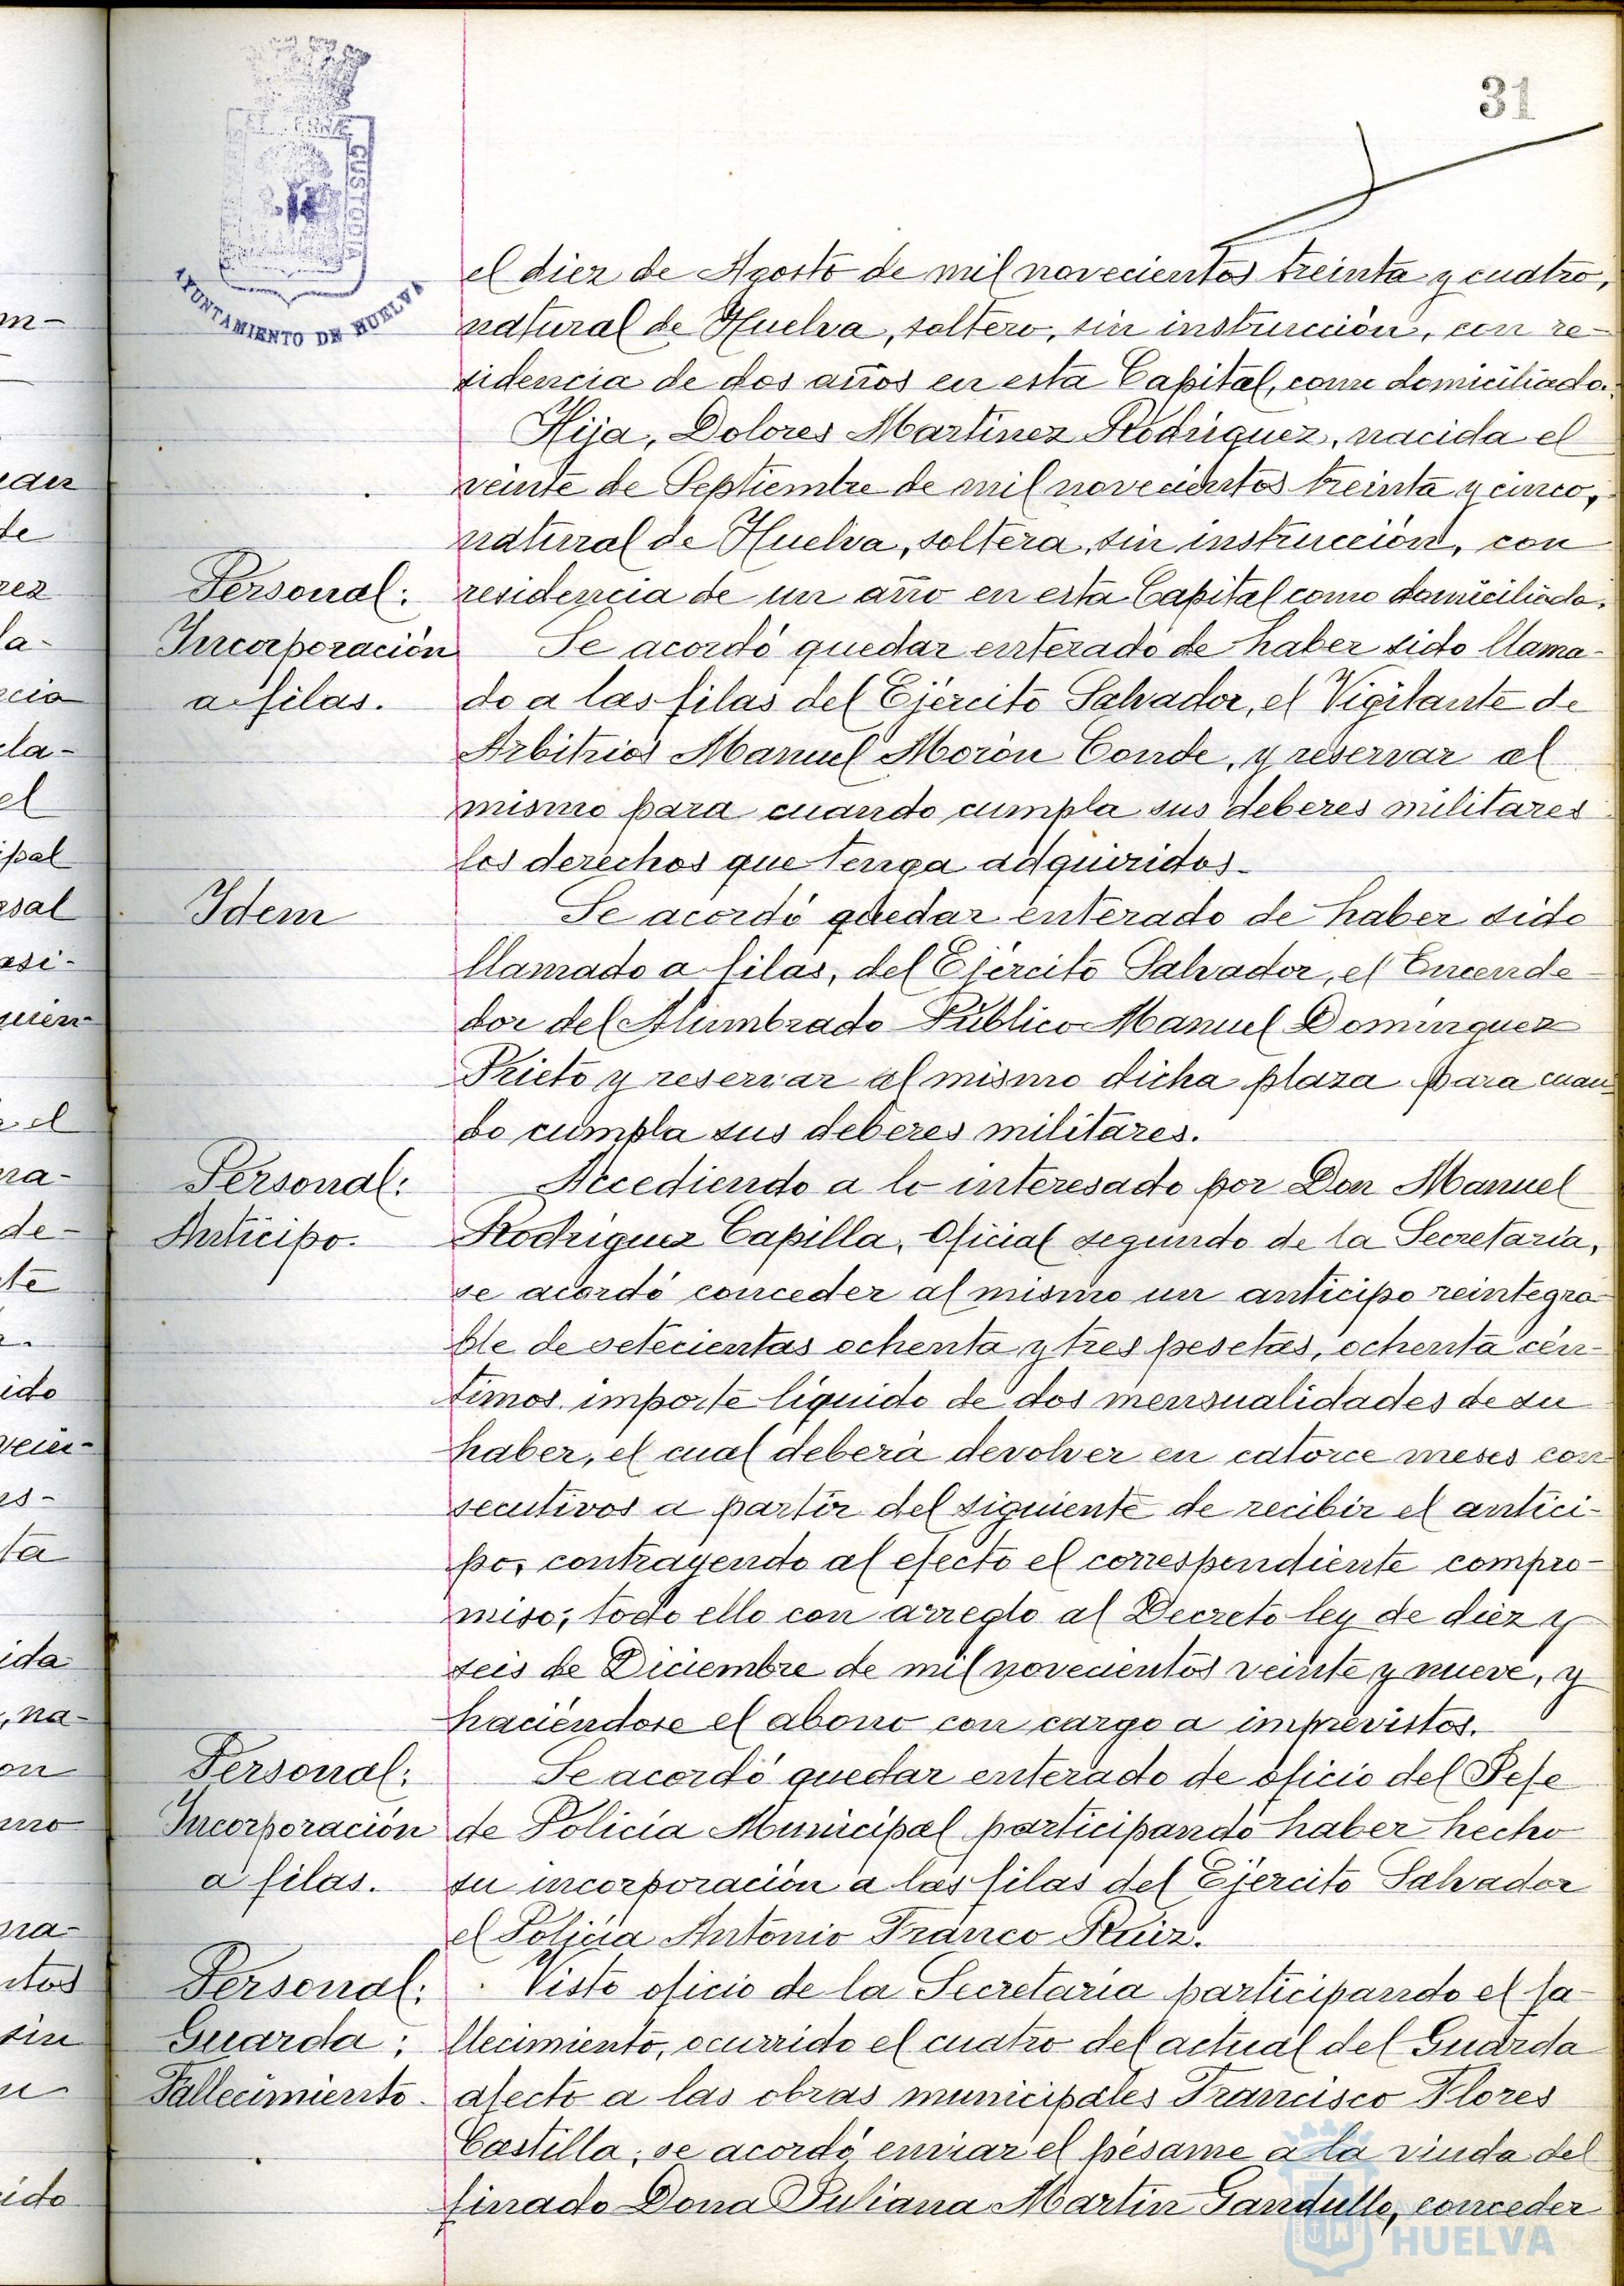 31
CUSTODIA
AYUNTAMIENTO DE HUELVA
el diez de Agosto de mil novecientos treinta y cuatro,
natural de Huelva, soltero, sin instrucción, con re-
sidencia de dos años en esta Capital, como domiciliado.
Hija, Dolores Martinez Rodriguez, nacida el
veinte de Septiembre de mil novecientos treinta y cinco,
natural de Huelva, soltera, sin instrucción, con
residencia de un año en esta Capital como domiciliada.
Personal:
Incorporación
a filas.
Se acordó quedar enterado de haber sido llama-
do a las filas del Ejército Salvador, el Vigilante de
Arbitrios Manuel Morón Conde, y reservar al
mismo para cuando cumpla sus deberes militares
los derechos que tenga adquiridos.
Idem
Se acordó quedar enterado de haber sido
llamado a filas, del Ejército Salvador, el Encende-
dor del Alumbrado Público Manuel Dominguez
Prieto y reservar al mismo dicha plaza para cuan-
do cumpla sus deberes militares.
Personal:
Anticipo.
Accediendo a lo interesado por Don Manuel
Rodriguez Capilla, Oficial segundo de la Secretaría,
se acordó conceder al mismo un anticipo reintegra-
ble de setecientas ochenta y tres pesetas, ochenta cén-
timos importe líquido de dos mensualidades de su
haber, el cual deberá devolver en catorce meses con
secutivos a partir del siguiente de recibir el antici-
po, contrayendo al efecto el correspondiente compro-
miso; todo ello con arreglo al Decreto ley de diez y
seis de Diciembre de mil novecientos veinte y nueve, y
haciéndose el abono con cargo a imprevistos.
Personal:
Incorporación
a filas.
Se acordó quedar enterado de oficio del Jefe
de Policía Municipal participando haber hecho
su incorporación a las filas del Ejército Salvador
el Policía Antonio Franco Ruiz.
Personal:
Guarda:
Fallecimiento.
Visto oficio de la Secretaría participando el fa-
llecimiento, ocurrido el cuatro del actual del Guarda
afecto a las obras municipales Francisco Flores
Castilla; se acordó enviar el pésame a la viuda del
finado Dona Juliana Martín Gandullo, conceder
HUELVA